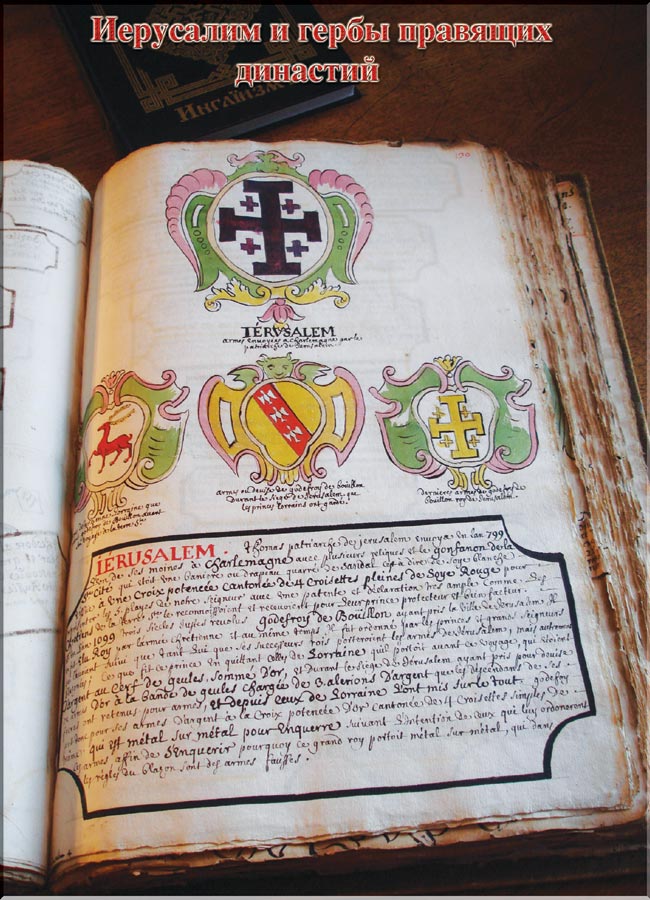 Иерусалим и гербы правящих
династий
Инглiизм
190
IÉRVSALEM
armes envoyées à Charlemagne par le
patriarche de Jerusalem
armes ou devise de godefroy de bouillon
durant le siege de Jerusalem que
les princes Lorrains ont gardé.
dernieres armes de godefroy de
Bouillon roy de Jerusalem.
IÉRUSALEM. Thomas patriarche de jerusalem envoya en l'an 799
de ses moines à Charlemagne avec plusieurs reliques et le gonfanon de la
Cité qui etoit une Baniere ou drapeau quarré de Sandal c'est à dire de Soye blanche
à une Croix potencée Cantonée de 4 Croisettes pleines de Soye Rouge pour
playes de notre seigneur avec une patente et déclaration tres ample comme
de la terre Ste le reconnoissoient et recevoient pour leur prince protecteur et bien facteur.
trois siecles aprés revolus godefroy de Bouillon ayant pris la Ville de Jerusalem
1099 Elu Roy par l'armée Chretienne et au même temps il fut ordonné par les princes et grands seigneurs
suivi que tant lui que ses successeurs rois porteroient les armes de Jerusalem, mais autrement
Ce que fit ce prince en quittant celles de Lorraine qu'il portoit avant ce voyage, qui étoient
argent au Cerf de gueules, Somme d'or, et durant le siege de Jerusalem ayant pris pour devise
d'or à la bande de gueules Chargée de 3 alerions d'argent que les descendants de ses
ont retenus pour armes, et depuis ceux de Lorraine l'ont mis sur le tout. godefroy
pour ses armes d'argent à la Croix potencée d'or Cantonée de 4 Croisettes simples de
qui est métal sur métal pour Enquerre suivant l'intention de ceux qui les ordonnerent
armes affin de s'Enquerir pourquoy ce grand roy portoit métal sur métal, qui dans
les régles du blazon sont des armes fausses.